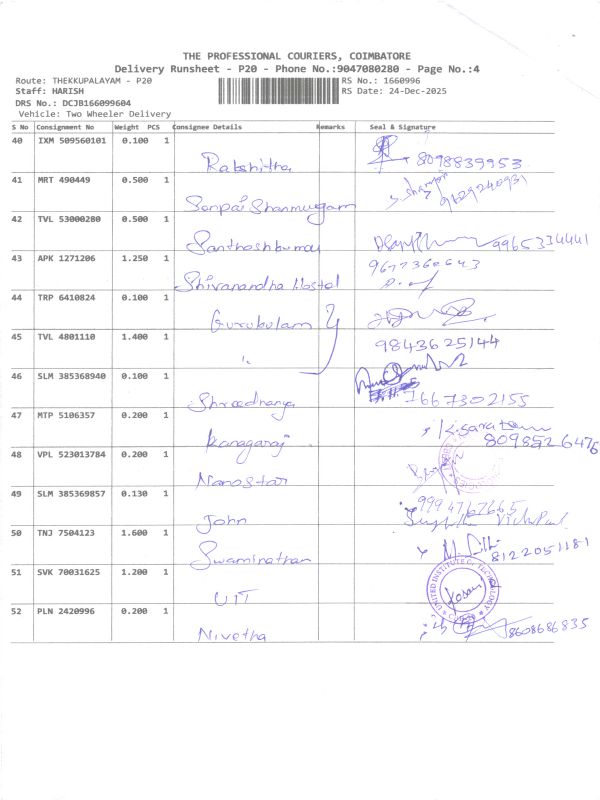 THE PROFESSIONAL COURIERS, COIMBATORE
Delivery Runsheet - P20 - Phone No.:9047080280 - Page No.:4
Route: THEKKUPALAYAM - P20 RS No.: 1660996
Staff: HARISH RS Date: 24-Dec-2025
DRS No.: DCJB166099604
Vehicle: Two Wheeler Delivery
S No Consignment No Weight PCS Consignee Details Remarks Seal & Signature
40 IXM 509560101 0.100 1
Rakshitha 8098839953
41 MRT 490449 0.500 1
Sanpai Shanmugam 9629240931
42 TVL 53000280 0.500 1
Santhoshkumar 9965334441
43 APK 1271206 1.250 1
Shivanandha Hostel
44 TRP 6410824 0.100 1
Gurukulam
45 TVL 4801110 1.400 1 9843625144
"
46 SLM 385368940 0.100 1
Shreedhanya 7667302155
47 MTP 5106357 0.200 1
Kanagaraj 8098526476
48 VPL 523013784 0.200 1
Nanostar
49 SLM 385369857 0.130 1 9994767665
John
50 TNJ 7504123 1.600 1
Swaminathan 8122051181
51 SVK 70031625 1.200 1
UIT UNITED INSTITUTE OF TECHNOLOGY
52 PLN 2420996 0.200 1
Nivetha 8608686835